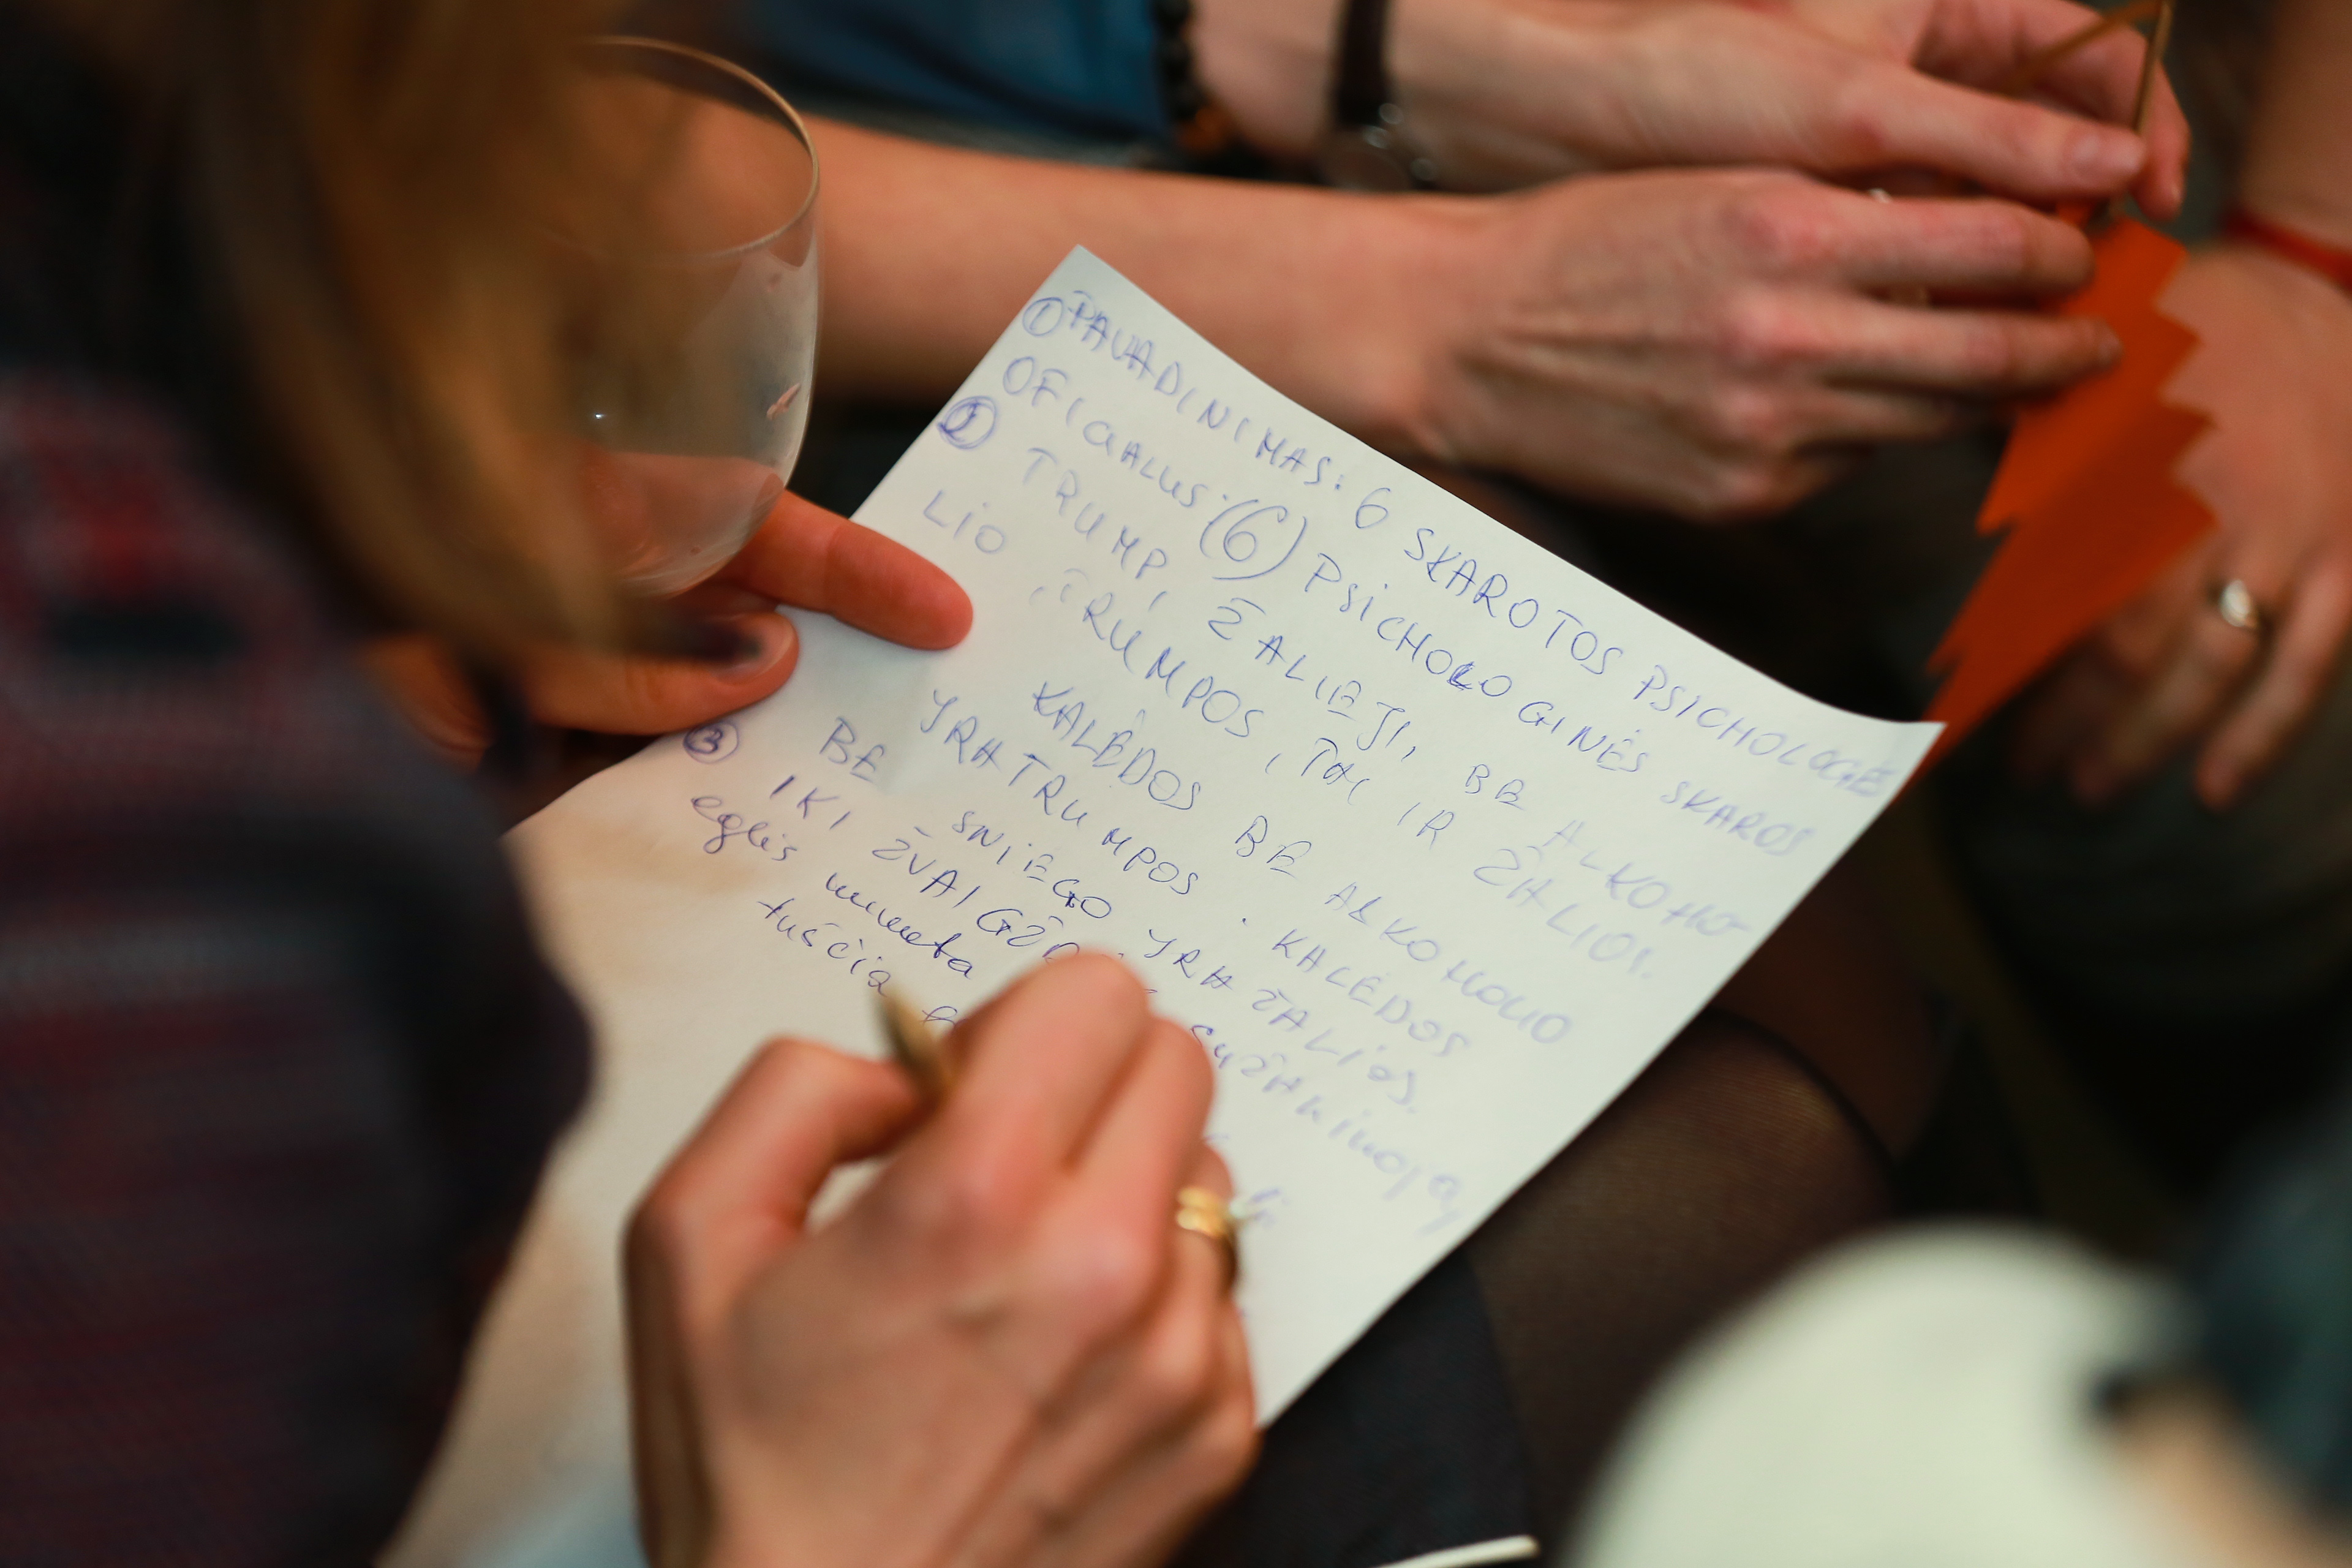 ① PAVADINIMAS: 6 SKAROTOS PSICHOLOGĖ
OFICIALUS: (6) PSICHOLOGINĖS SKAROS
② TRUMPI, ŽALIEJI, BE ALKOHO
LIO. TRUMPOS, TAI IR ŽALIOS.
KALĖDOS BE ALKOHOLIO
YRA TRUMPOS. KALĖDOS
BE SNIEGO YRA ŽALIOS.
③ IKI SUŽAKIMOJĄ
eglės numeta
tuščia